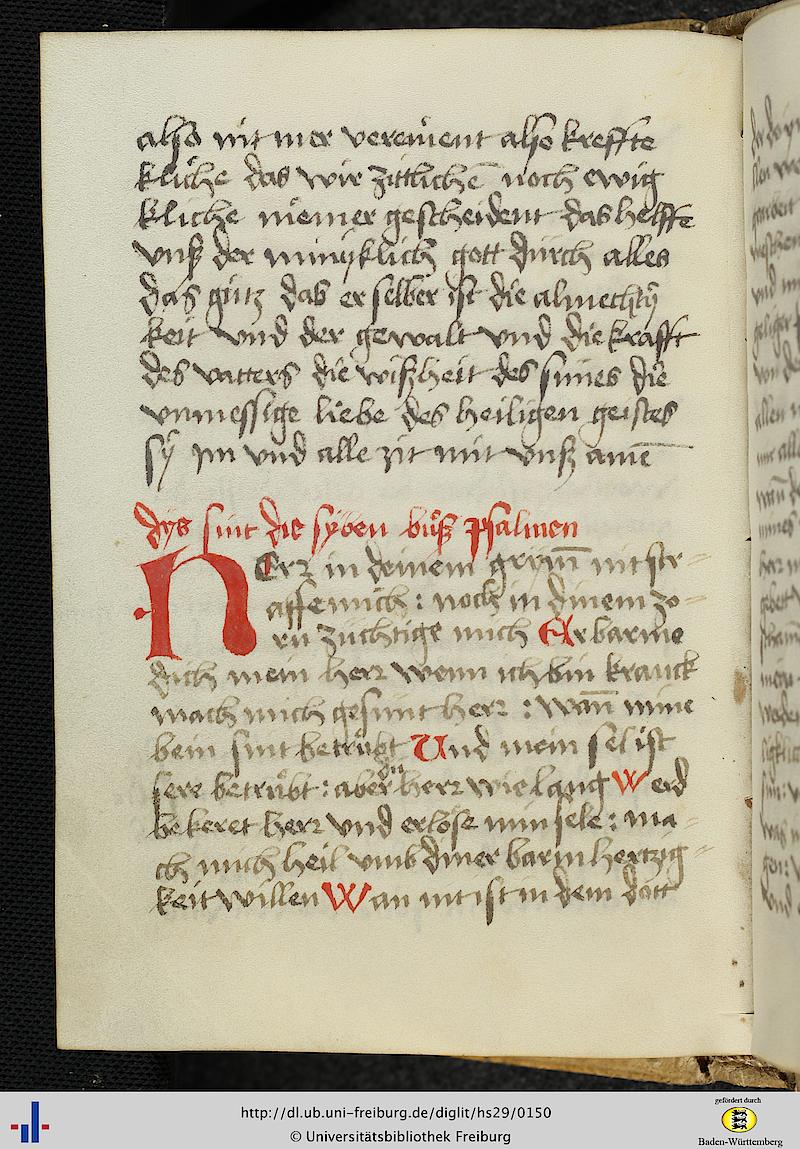 also nit mer vereinent also kreffte
kliche das wir zittlichē noch ewig
kliche niemer gescheident das helffe
vnß der minnklich gott durch alles
das gůtz das er selber ist die almechtÿ
keit vnd der gewalt vnd die krafft
des vatters die wißheit des sunes die
vnmessige liebe des heiligen geistes
sÿ im vnd alle zit mit vnß amē
dys sint die syben bůß psalmen
HErr in deinem grym̄ nit str=
affe mich : noch in dinem zo=
rn züchtige mich Erbarme
dich mein herr wenn ich bin kranck
mach mich gesunt herr : wan̄ mine
bein sint betrůbt Und mein sel ist
sere betrůbt : aber du herr wie lang Werd
bekeret herr vnd erlöse min sele : ma=
ch mich heil vmb diner barmhertzig=
keit willen Wan nit ist in dem dott
http://dl.ub.uni-freiburg.de/diglit/hs29/0150
© Universitätsbibliothek Freiburg
gefördert durch
Baden-Württemberg